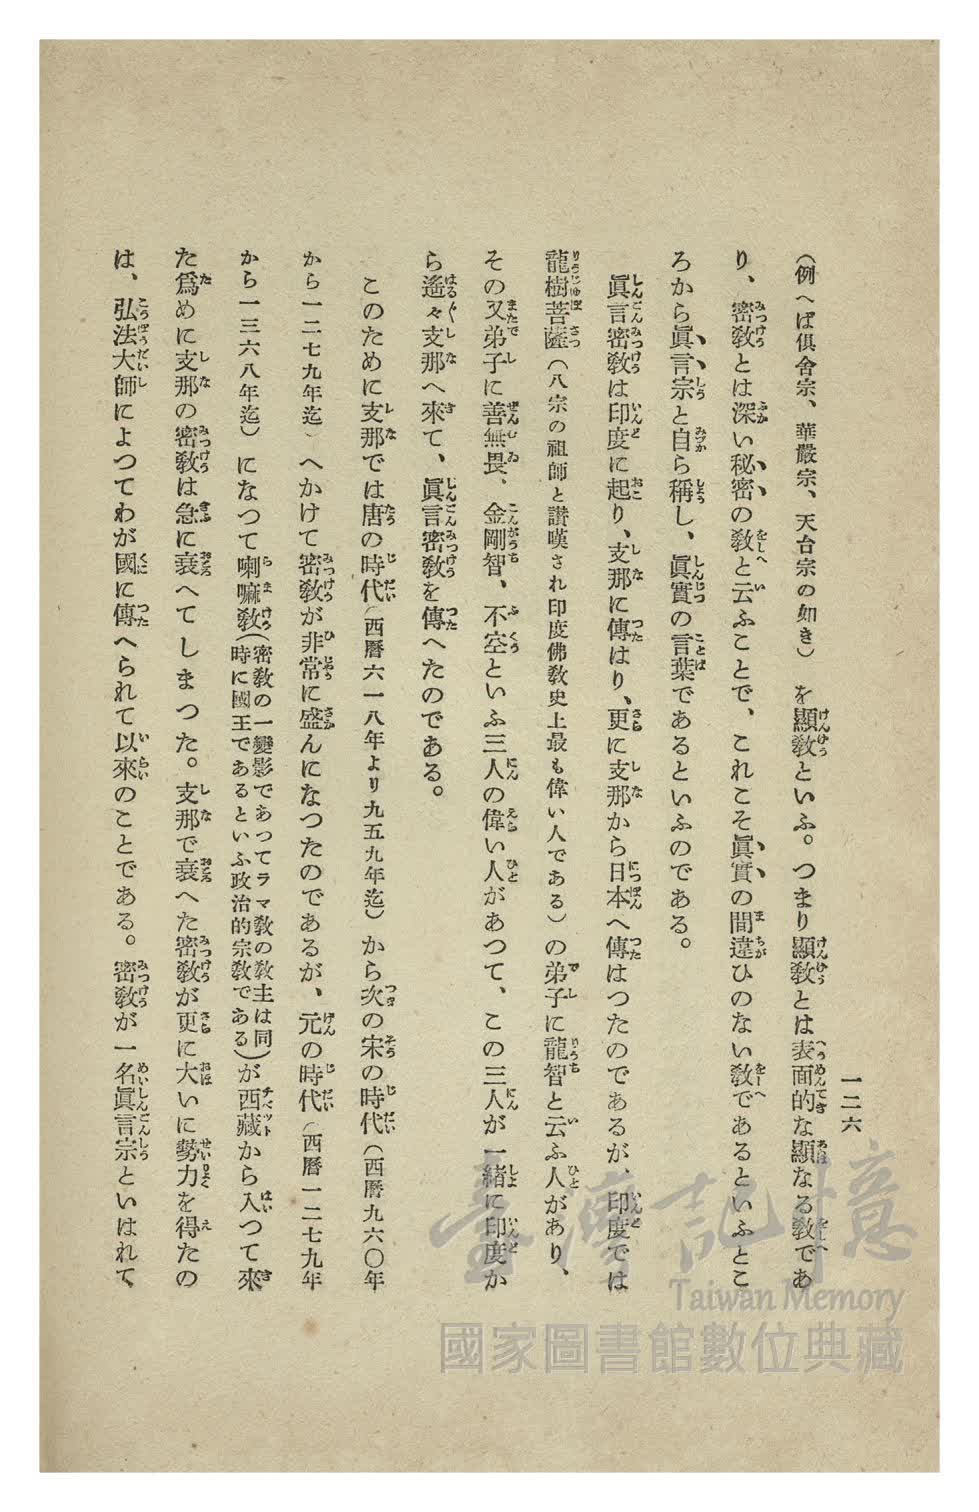 一二六
（例へば倶舍宗、華嚴宗、天台宗の如き）を顯敎といふ。つまり顯敎とは表面的な顯なる敎であ
り、密敎とは深い秘密の敎と云ふことで、これこそ眞實の間違ひのない敎であるといふとこ
ろから眞言宗と自ら稱し、眞實の言葉であるといふのである。
眞言密敎は印度に起り、支那に傳はり、更に支那から日本へ傳はつたのであるが、印度では
龍樹菩薩（八宗の祖師と讃嘆され印度佛敎史上最も偉い人である）の弟子に龍智と云ふ人があり、
その又弟子に善無畏、金剛智、不空といふ三人の偉い人があつて、この三人が一緖に印度か
ら遙々支那へ來て、眞言密敎を傳へたのである。
このために支那では唐の時代（西曆六一八年より九五九年迄）から次の宋の時代（西曆九六〇年
から一二七九年迄）へかけて密敎が非常に盛んになつたのであるが、元の時代（西曆一二七九年
から一三六八年迄）になつて喇嘛敎（密敎の一變影であつてラマ敎の敎主は同時に國王であるといふ政治的宗敎である）が西藏から入つて來
た爲めに支那の密敎は急に衰へてしまつた。支那で衰へた密敎が更に大いに勢力を得たの
は、弘法大師によつてわが國に傳へられて以來のことである。密敎が一名眞言宗といはれて
臺灣記憶
Taiwan Memory
國家圖書館數位典藏